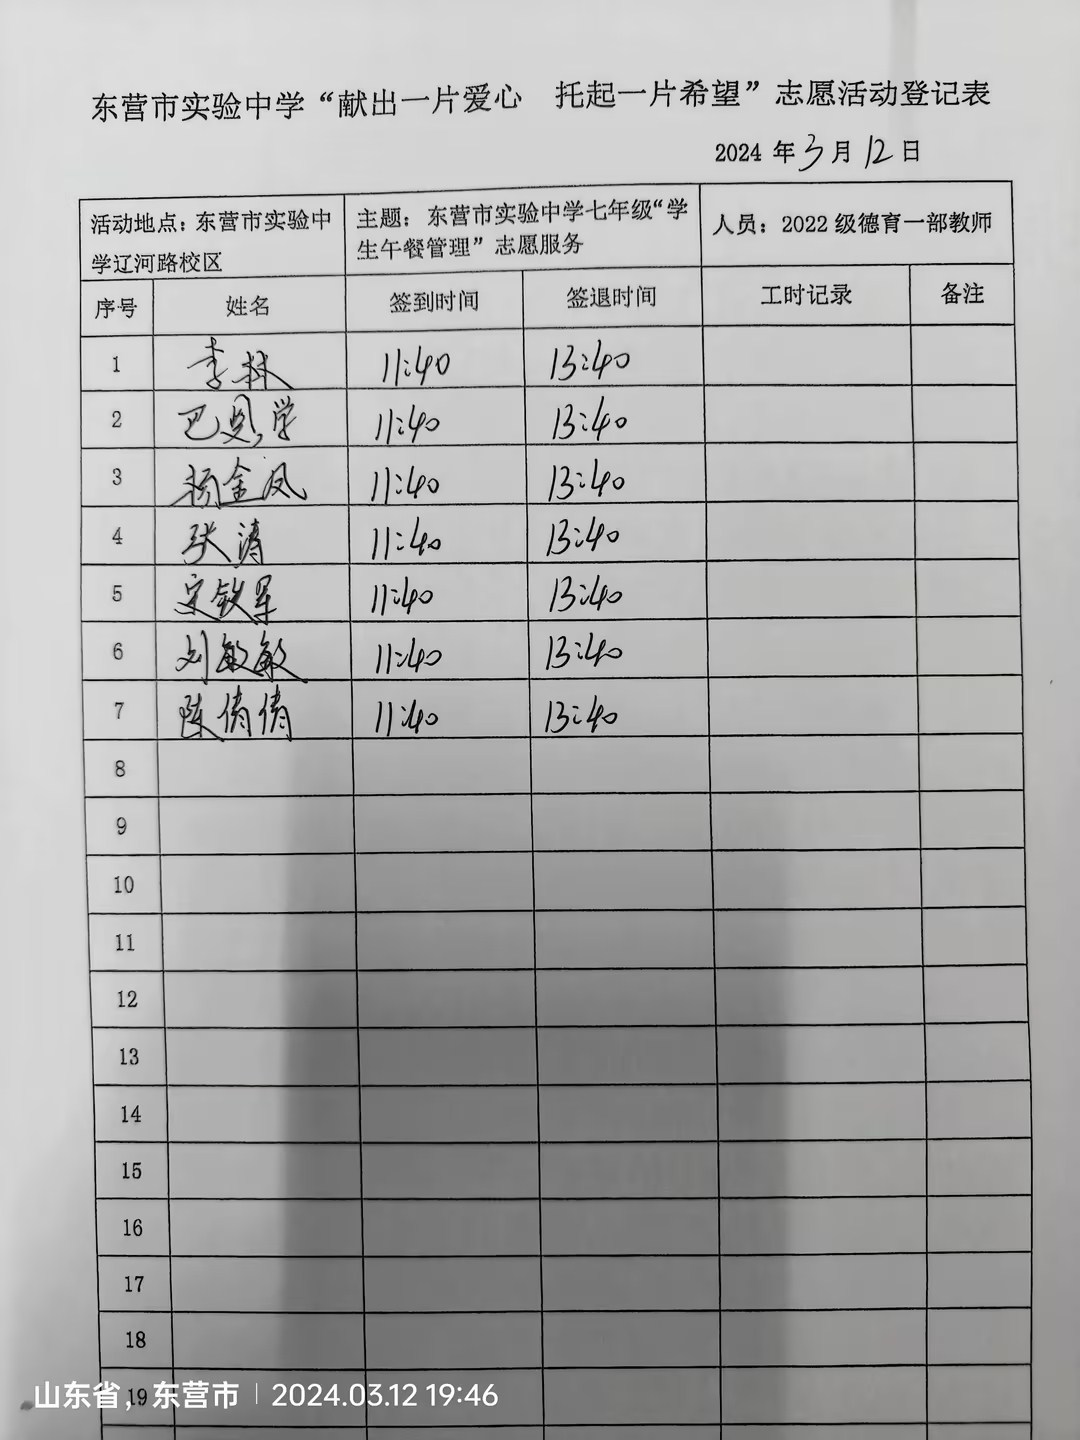 东营市实验中学“献出一片爱心 托起一片希望”志愿活动登记表
2024 年 3 月 12 日
活动地点：东营市实验中学辽河路校区 主题：东营市实验中学七年级“学生午餐管理”志愿服务 人员：2022 级德育一部教师
序号 姓名 签到时间 签退时间 工时记录 备注
1 李林 11:40 13:40
2 巴恩学 11:40 13:40
3 杨金凤 11:40 13:40
4 张涛 11:40 13:40
5 宋铁军 11:40 13:40
6 刘敏敏 11:40 13:40
7 陈倩倩 11:40 13:40
8
9
10
11
12
13
14
15
16
17
18
19
山东省，东营市 | 2024.03.12 19:46